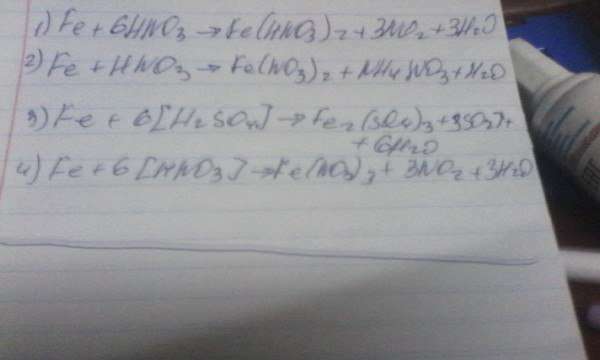 1) Fe + 6HNO3 → Fe(HNO3)2 + 3NO2 + 3H2O
2) Fe + HNO3 → Fe(NO3)2 + NH4NO3 + H2O
3) Fe + 6[H2SO4] → Fe2(SO4)3 + 3SO2↑ +
+ 6H2O
4) Fe + 6[HNO3] → Fe(NO3)3 + 3NO2 + 3H2O